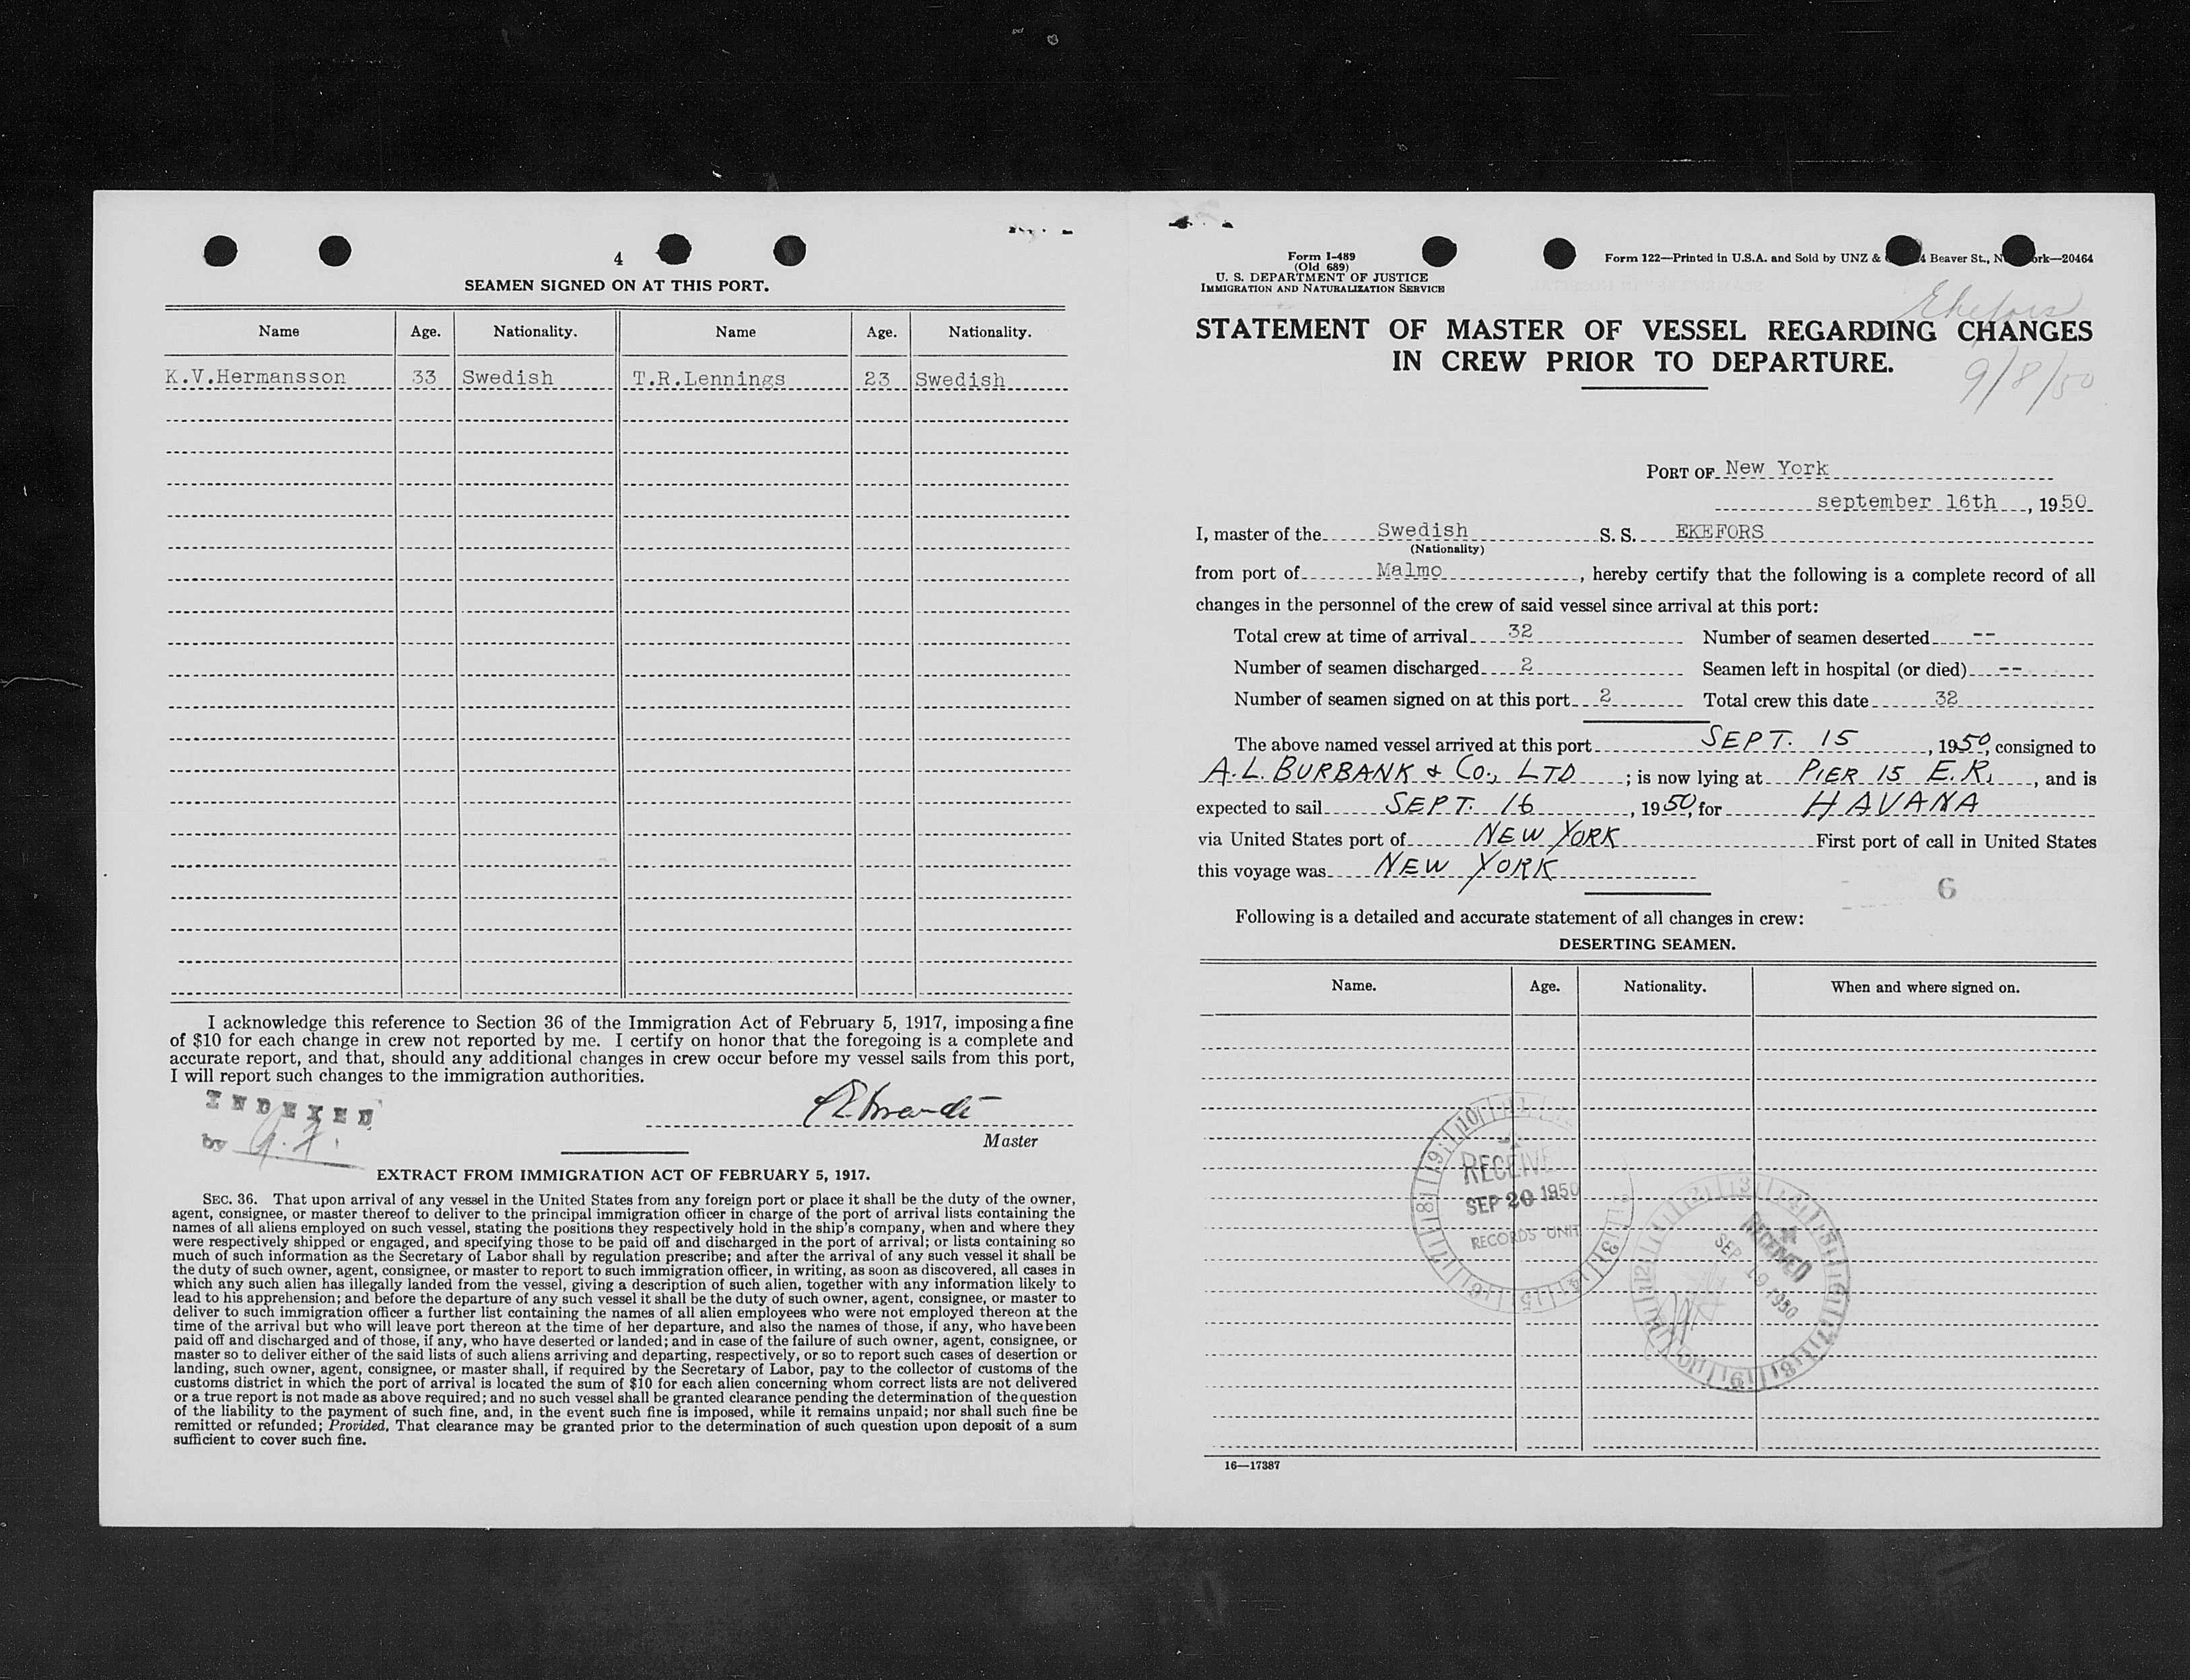 4
SEAMEN SIGNED ON AT THIS PORT.
Name Age. Nationality. Name Age. Nationality.
K.V.Hermansson 33 Swedish T.R.Lennings 23 Swedish
I acknowledge this reference to Section 36 of the Immigration Act of February 5, 1917, imposing a fine
of $10 for each change in crew not reported by me. I certify on honor that the foregoing is a complete and
accurate report, and that, should any additional changes in crew occur before my vessel sails from this port,
I will report such changes to the immigration authorities.
INDEXED
by
Master
EXTRACT FROM IMMIGRATION ACT OF FEBRUARY 5, 1917.
SEC. 36. That upon arrival of any vessel in the United States from any foreign port or place it shall be the duty of the owner,
agent, consignee, or master thereof to deliver to the principal immigration officer in charge of the port of arrival lists containing the
names of all aliens employed on such vessel, stating the positions they respectively hold in the ship's company, when and where they
were respectively shipped or engaged, and specifying those to be paid off and discharged in the port of arrival; or lists containing so
much of such information as the Secretary of Labor shall by regulation prescribe; and after the arrival of any such vessel it shall be
the duty of such owner, agent, consignee, or master to report to such immigration officer, in writing, as soon as discovered, all cases in
which any such alien has illegally landed from the vessel, giving a description of such alien, together with any information likely to
lead to his apprehension; and before the departure of any such vessel it shall be the duty of such owner, agent, consignee, or master to
deliver to such immigration officer a further list containing the names of all alien employees who were not employed thereon at the
time of the arrival but who will leave port thereon at the time of her departure, and also the names of those, if any, who have been
paid off and discharged and of those, if any, who have deserted or landed; and in case of the failure of such owner, agent, consignee, or
master so to deliver either of the said lists of such aliens arriving and departing, respectively, or so to report such cases of desertion or
landing, such owner, agent, consignee, or master shall, if required by the Secretary of Labor, pay to the collector of customs of the
customs district in which the port of arrival is located the sum of $10 for each alien concerning whom correct lists are not delivered
or a true report is not made as above required; and no such vessel shall be granted clearance pending the determination of the question
of the liability to the payment of such fine, and, in the event such fine is imposed, while it remains unpaid; nor shall such fine be
remitted or refunded; Provided, That clearance may be granted prior to the determination of such question upon deposit of a sum
sufficient to cover such fine.
Form I-489
(Old 689)
U. S. DEPARTMENT OF JUSTICE
IMMIGRATION AND NATURALIZATION SERVICE
Form 122—Printed in U.S.A. and Sold by UNZ & Beaver St., N ork—20464
Ekefors
STATEMENT OF MASTER OF VESSEL REGARDING CHANGES
IN CREW PRIOR TO DEPARTURE.
9/8/50
PORT OF New York
september 16th, 1950
I, master of the Swedish S. S. EKEFORS
(Nationality)
from port of Malmo, hereby certify that the following is a complete record of all
changes in the personnel of the crew of said vessel since arrival at this port:
Total crew at time of arrival 32 Number of seamen deserted --
Number of seamen discharged 2 Seamen left in hospital (or died) --
Number of seamen signed on at this port 2 Total crew this date 32
The above named vessel arrived at this port SEPT. 15, 1950, consigned to
A.L. BURBANK & CO., LTD; is now lying at PIER 15 E.R., and is
expected to sail SEPT. 16, 1950, for HAVANA
via United States port of NEW YORK First port of call in United States
this voyage was NEW YORK
6
Following is a detailed and accurate statement of all changes in crew:
DESERTING SEAMEN.
Name. Age. Nationality. When and where signed on.
RECEIVE
SEP 20 1950
RECORDS UNIT
RECEIVED
SEP 19 1950
16—17387